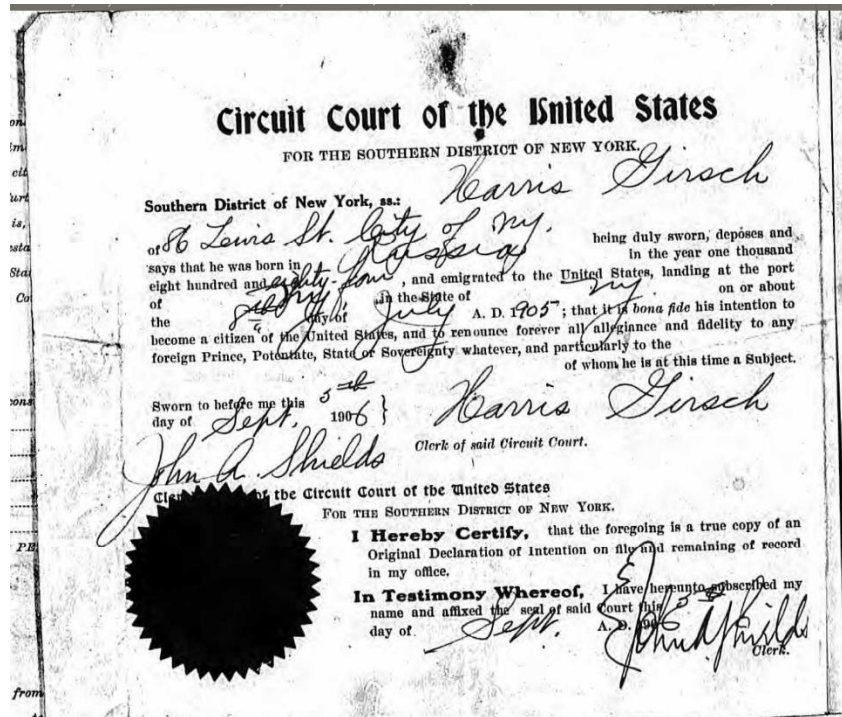 Circuit Court of the United States
FOR THE SOUTHERN DISTRICT OF NEW YORK.
Harris Girsch
Southern District of New York, ss.:
of 86 Lewis St. City of NY. being duly sworn, deposes and
says that he was born in Russia in the year one thousand
eight hundred and eighty-four, and emigrated to the United States, landing at the port
of NY in the State of NY on or about
the day of July A. D. 1905; that it is bona fide his intention to
become a citizen of the United States, and to renounce forever all allegiance and fidelity to any
foreign Prince, Potentate, State or Sovereignty whatever, and particularly to the
of whom he is at this time a Subject.
Sworn to before me this 5th
day of Sept. 1906 } Harris Girsch
John A. Shields Clerk of said Circuit Court.
of the Circuit Court of the United States
FOR THE SOUTHERN DISTRICT OF NEW YORK.
I Hereby Certify, that the foregoing is a true copy of an
Original Declaration of Intention on file and remaining of record
in my office.
In Testimony Whereof, I have hereunto subscribed my
name and affixed the seal of said Court this 5th
day of Sept. A. D. 190
John A Shields
Clerk.
from